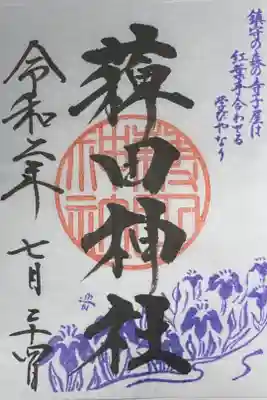 鎮守の森の寺子屋は
紅葉手合わせる
学びやなり
薭田神社
令和六年 七月二十四日